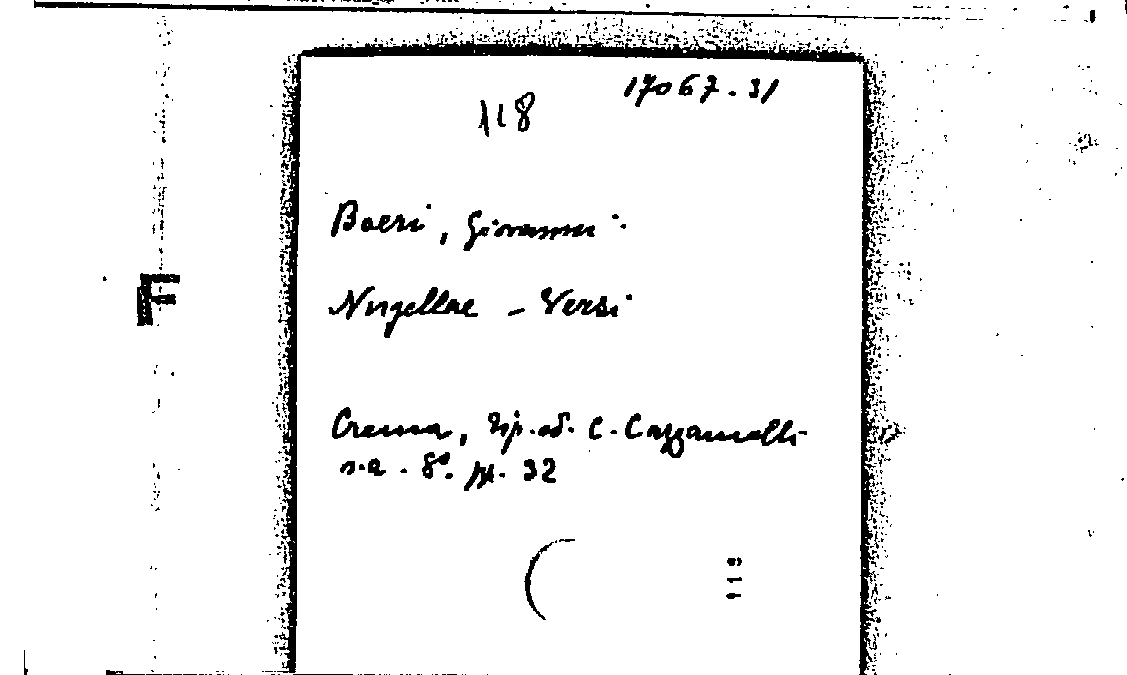 17067.31
118
Boeri, Giovanni.
Nugellae - Versi
Crema, Tip. ed. C. Cazzamalli
s.a. 8°. pp. 32